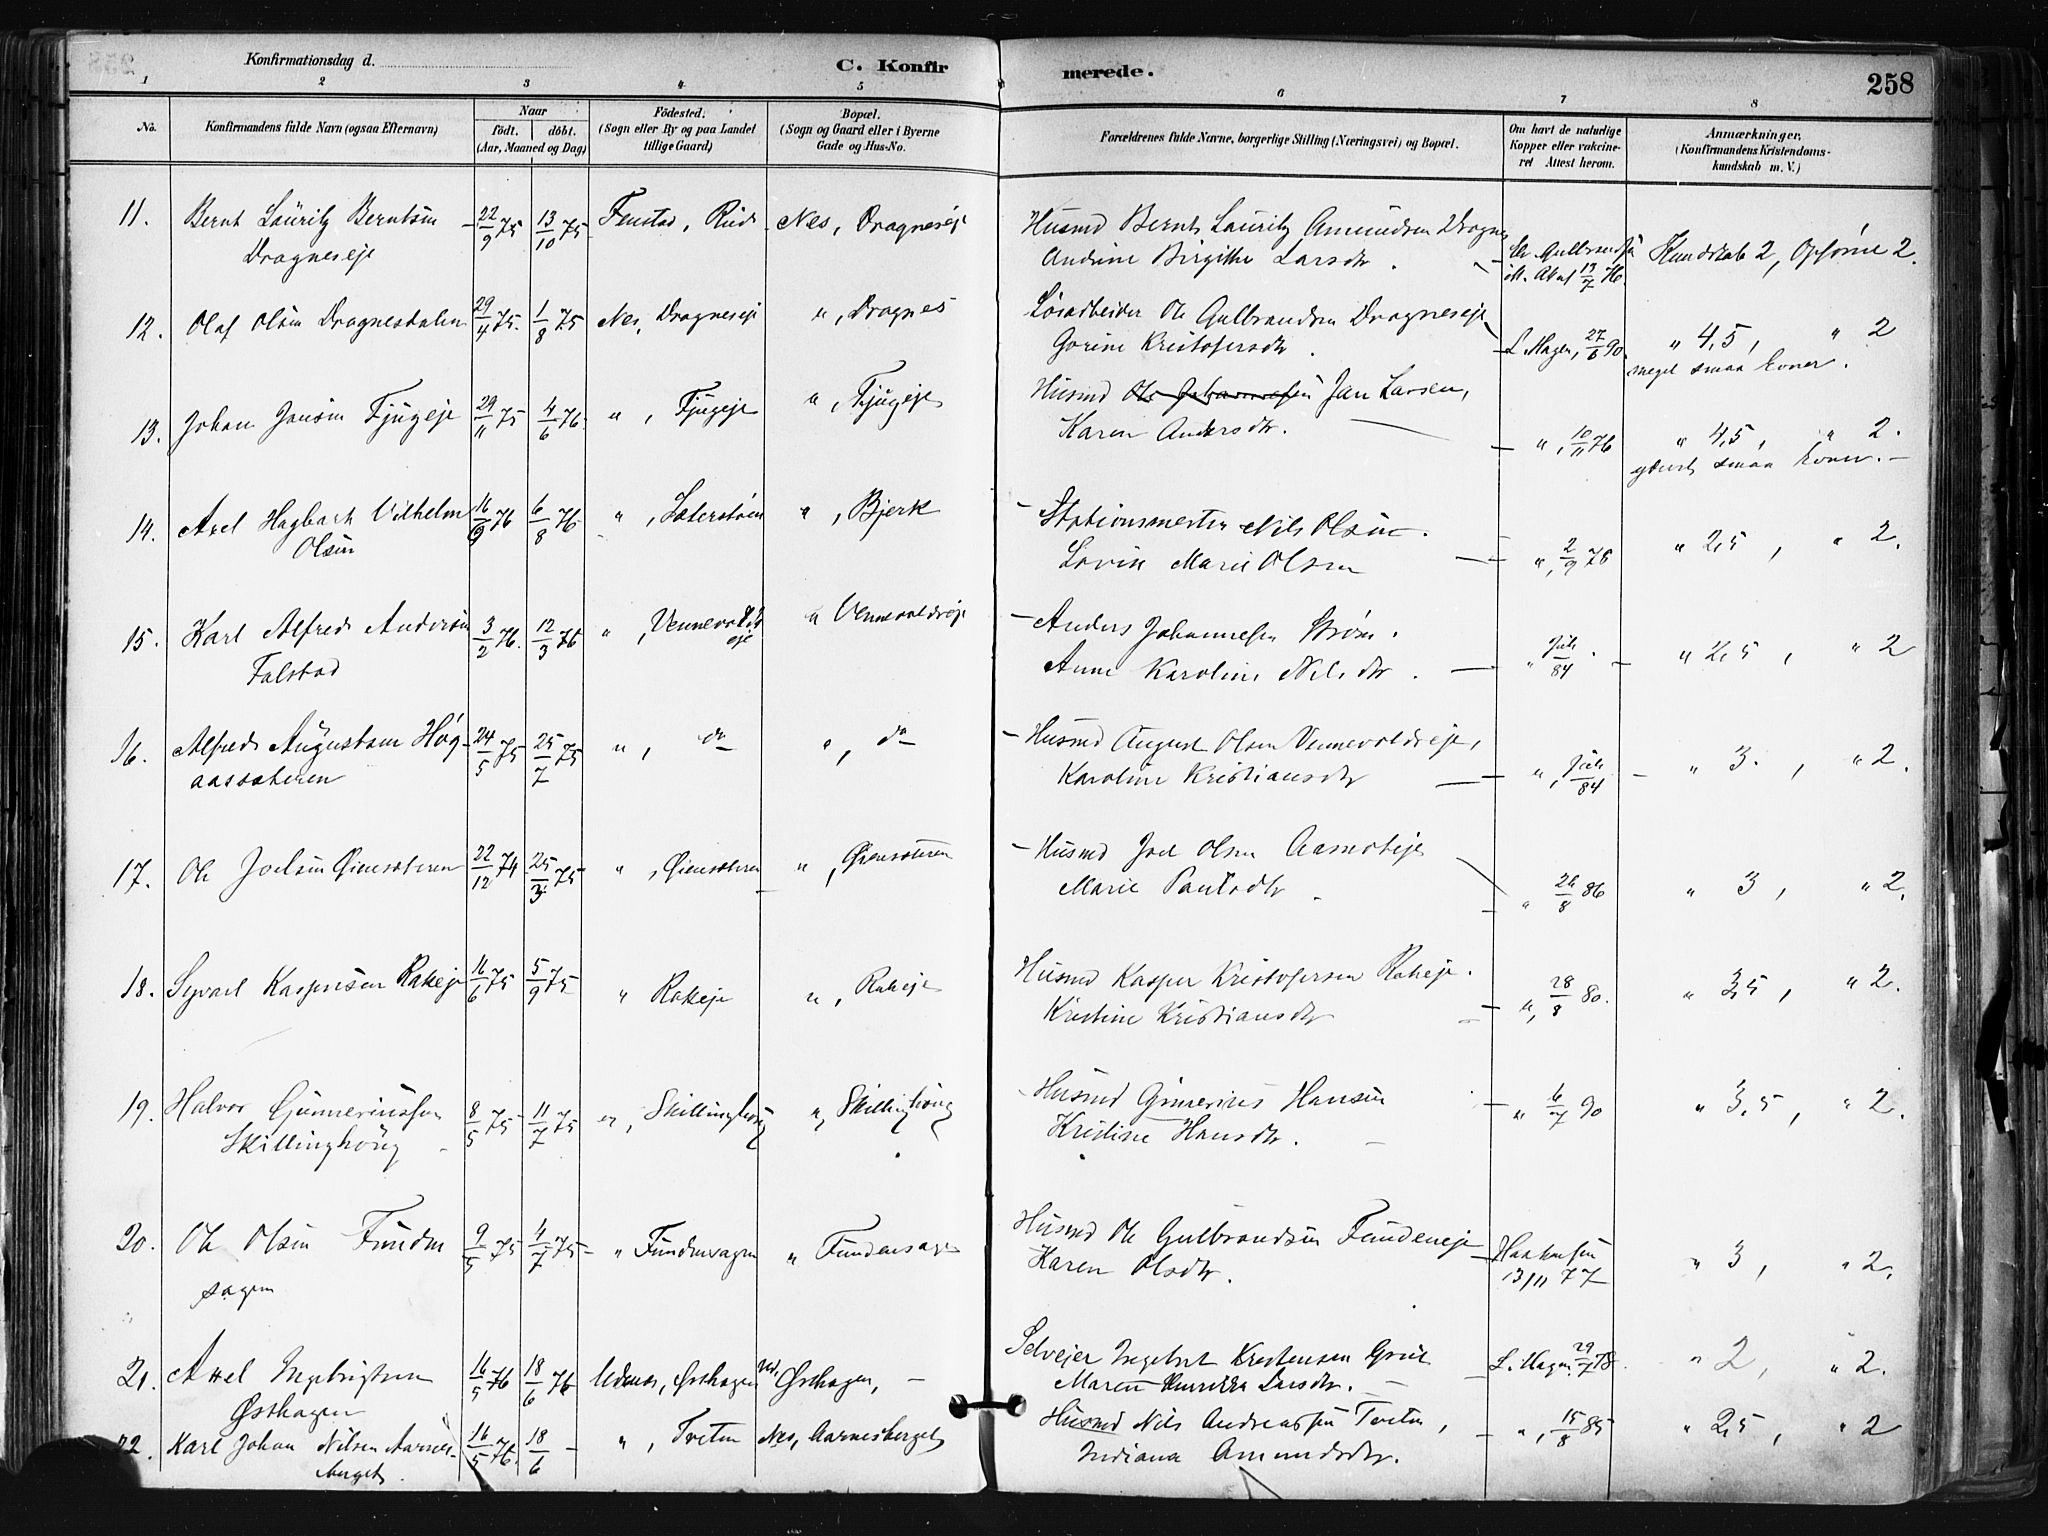 Konfirmationsdag d.
C. Konfirmerede.
258
1 2 3 4 5 6 7 8
No.
Konfirmandens fulde Navn (ogsaa Efternavn)
Naar
født. døbt.
(Aar, Maaned og Dag)
Fødested.
(Sogn eller By og paa Landet
tillige Gaard)
Bopæl.
(Sogn og Gaard eller i Byerne
Gade og Hus-No.
Forældrenes fulde Navne, borgerlige Stilling (Næringsvei) og Bopæl.
Om havt de naturlige
Kopper eller vakcine-
ret Attest herom.
Anmærkninger,
(Konfirmandens Kristendoms-
kundskab m. V.)
11. Bernt Lauritz Berntsen 22/9 75 13/10 75 Fenstad, Rud Nes, Dragneseje Husmd Bernt Lauritz Amundsen Dragnes
Dragneseje Andrine Birgithe Larsdtr. 13/7 76. Kundskab 2, Opførsel 2.
12. Olaf Olsen Dragnesdalen 29/4 75. 1/8 75 Nes, Dragneseje ", Dragnes Løsarbeider Ole Gulbrandsen Dragneseje
Gorine Kristofersdtr. L Hagen, 27/6 90. " 4,5, " 2
meget smaa Evner.
13. Johan Jansen Fjugeje 29/11 75 4/6 76. ", Fjugeje ", Fjugeje Husmd Ole Johannesen Jan Larsen,
Karen Andersdtr. ", 10/11 76 " 4,5, " 2.
smaa Evner. –
14. Axel Hagbart Vilhelm 16/9 76 6/8 76 ", Sæterstøen ", Bjerk Stationsmester Nils Olsen.
Olsen Lovise Marie Olsen ", 2/9 78 " 2,5, " 2.
15. Karl Alfred Andersen 3/2 76. 12/3 76 ", Vennevolds " Vennevoldseje Anders Johannesen Strøm.
Falstad eje Anne Karoline Nilsdtr. " Juli/84 – " 2,5, " 2
16. Alfred Augustsen Høg- 24/5 75 25/7 75 ", do ", do Husmd August Olsen Vennevoldseje,
aassæteren Karoline Kristiansdtr ", Juli/84 – " 3, " 2.
17. Ole Joelsen Øiensæteren 22/12 74 25/3 75 ", Øiensæteren ", Øiensæteren Husmd Joel Olsen Aamoteje
Marie Paulsdtr. " 26/8 86 " 3, " 2.
18. Syvart Kaspersen Rakeje 16/6 75 5/9 75 " Rakeje ", Rakeje Husmd Kasper Kristofersen Rakeje.
Kristine Kristiansdtr ", 28/8 80. " 3,5, " 2.
19. Halvor Gunneriussen 8/5 75 11/7 75 ", Skillinghoug ", Skillinghoug Husmd Gunerius Hansen
Skillinghoug Kristine Hansdtr. " 6/7 90 " 3,5, " 2.
20. Ole Olsen Funden 9/5 75 4/7 75 " Fundensagen " Fundensagen Husmd Ole Gulbrandsen Fundeneje
sagen Karen Olsdtr. Haakensen
13/11 77 " 3, " 2.
21. Axel Ingebrigtsen 16/5 76 18/6 76 Udenes, Østhagen Ud. Østhagen, Selvejer Ingebret Kristensen Grut
Østhagen Maren Larsdtr. L. Hagen 29/7 78. " 2, " 2.
22. Karl Johan Nilsen Aarnes- 16/5 76. 18/6 – ", Tveten Nes, Aarnesberget Husmd Nils Andreassen Tveten,
berget. Indiana Amundsdtr. ", 15/8 85 " 2,5, " 2